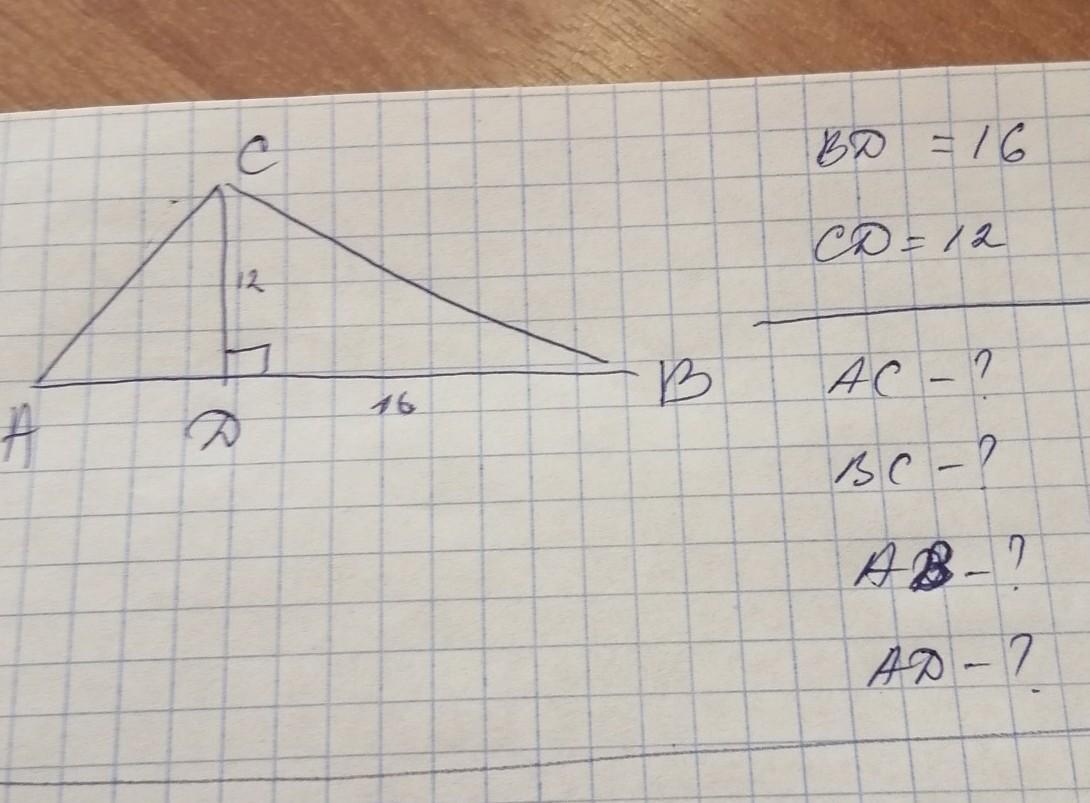 C
12
A
D
16
B
BD = 16
CD = 12
AC - ?
BC - ?
AB - ?
AD - ?